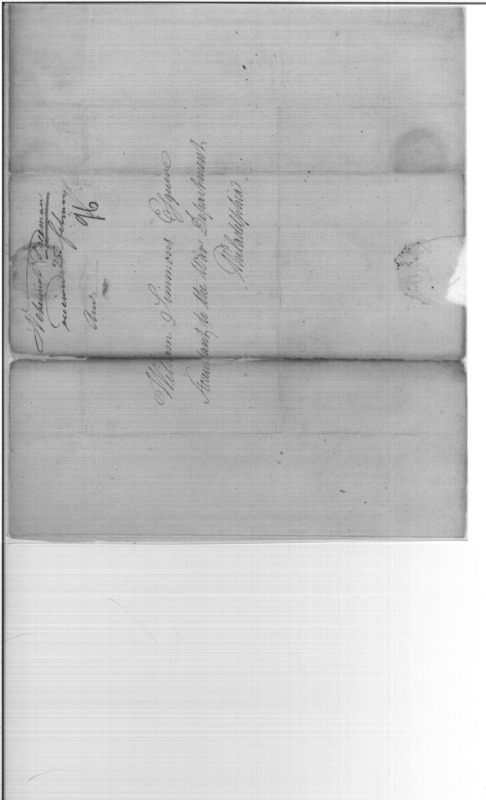 Nehemiah Freeman
received 25 February
96
Ansd
William Simmons Esquire
Accountant to the War Department,
Philadelphia